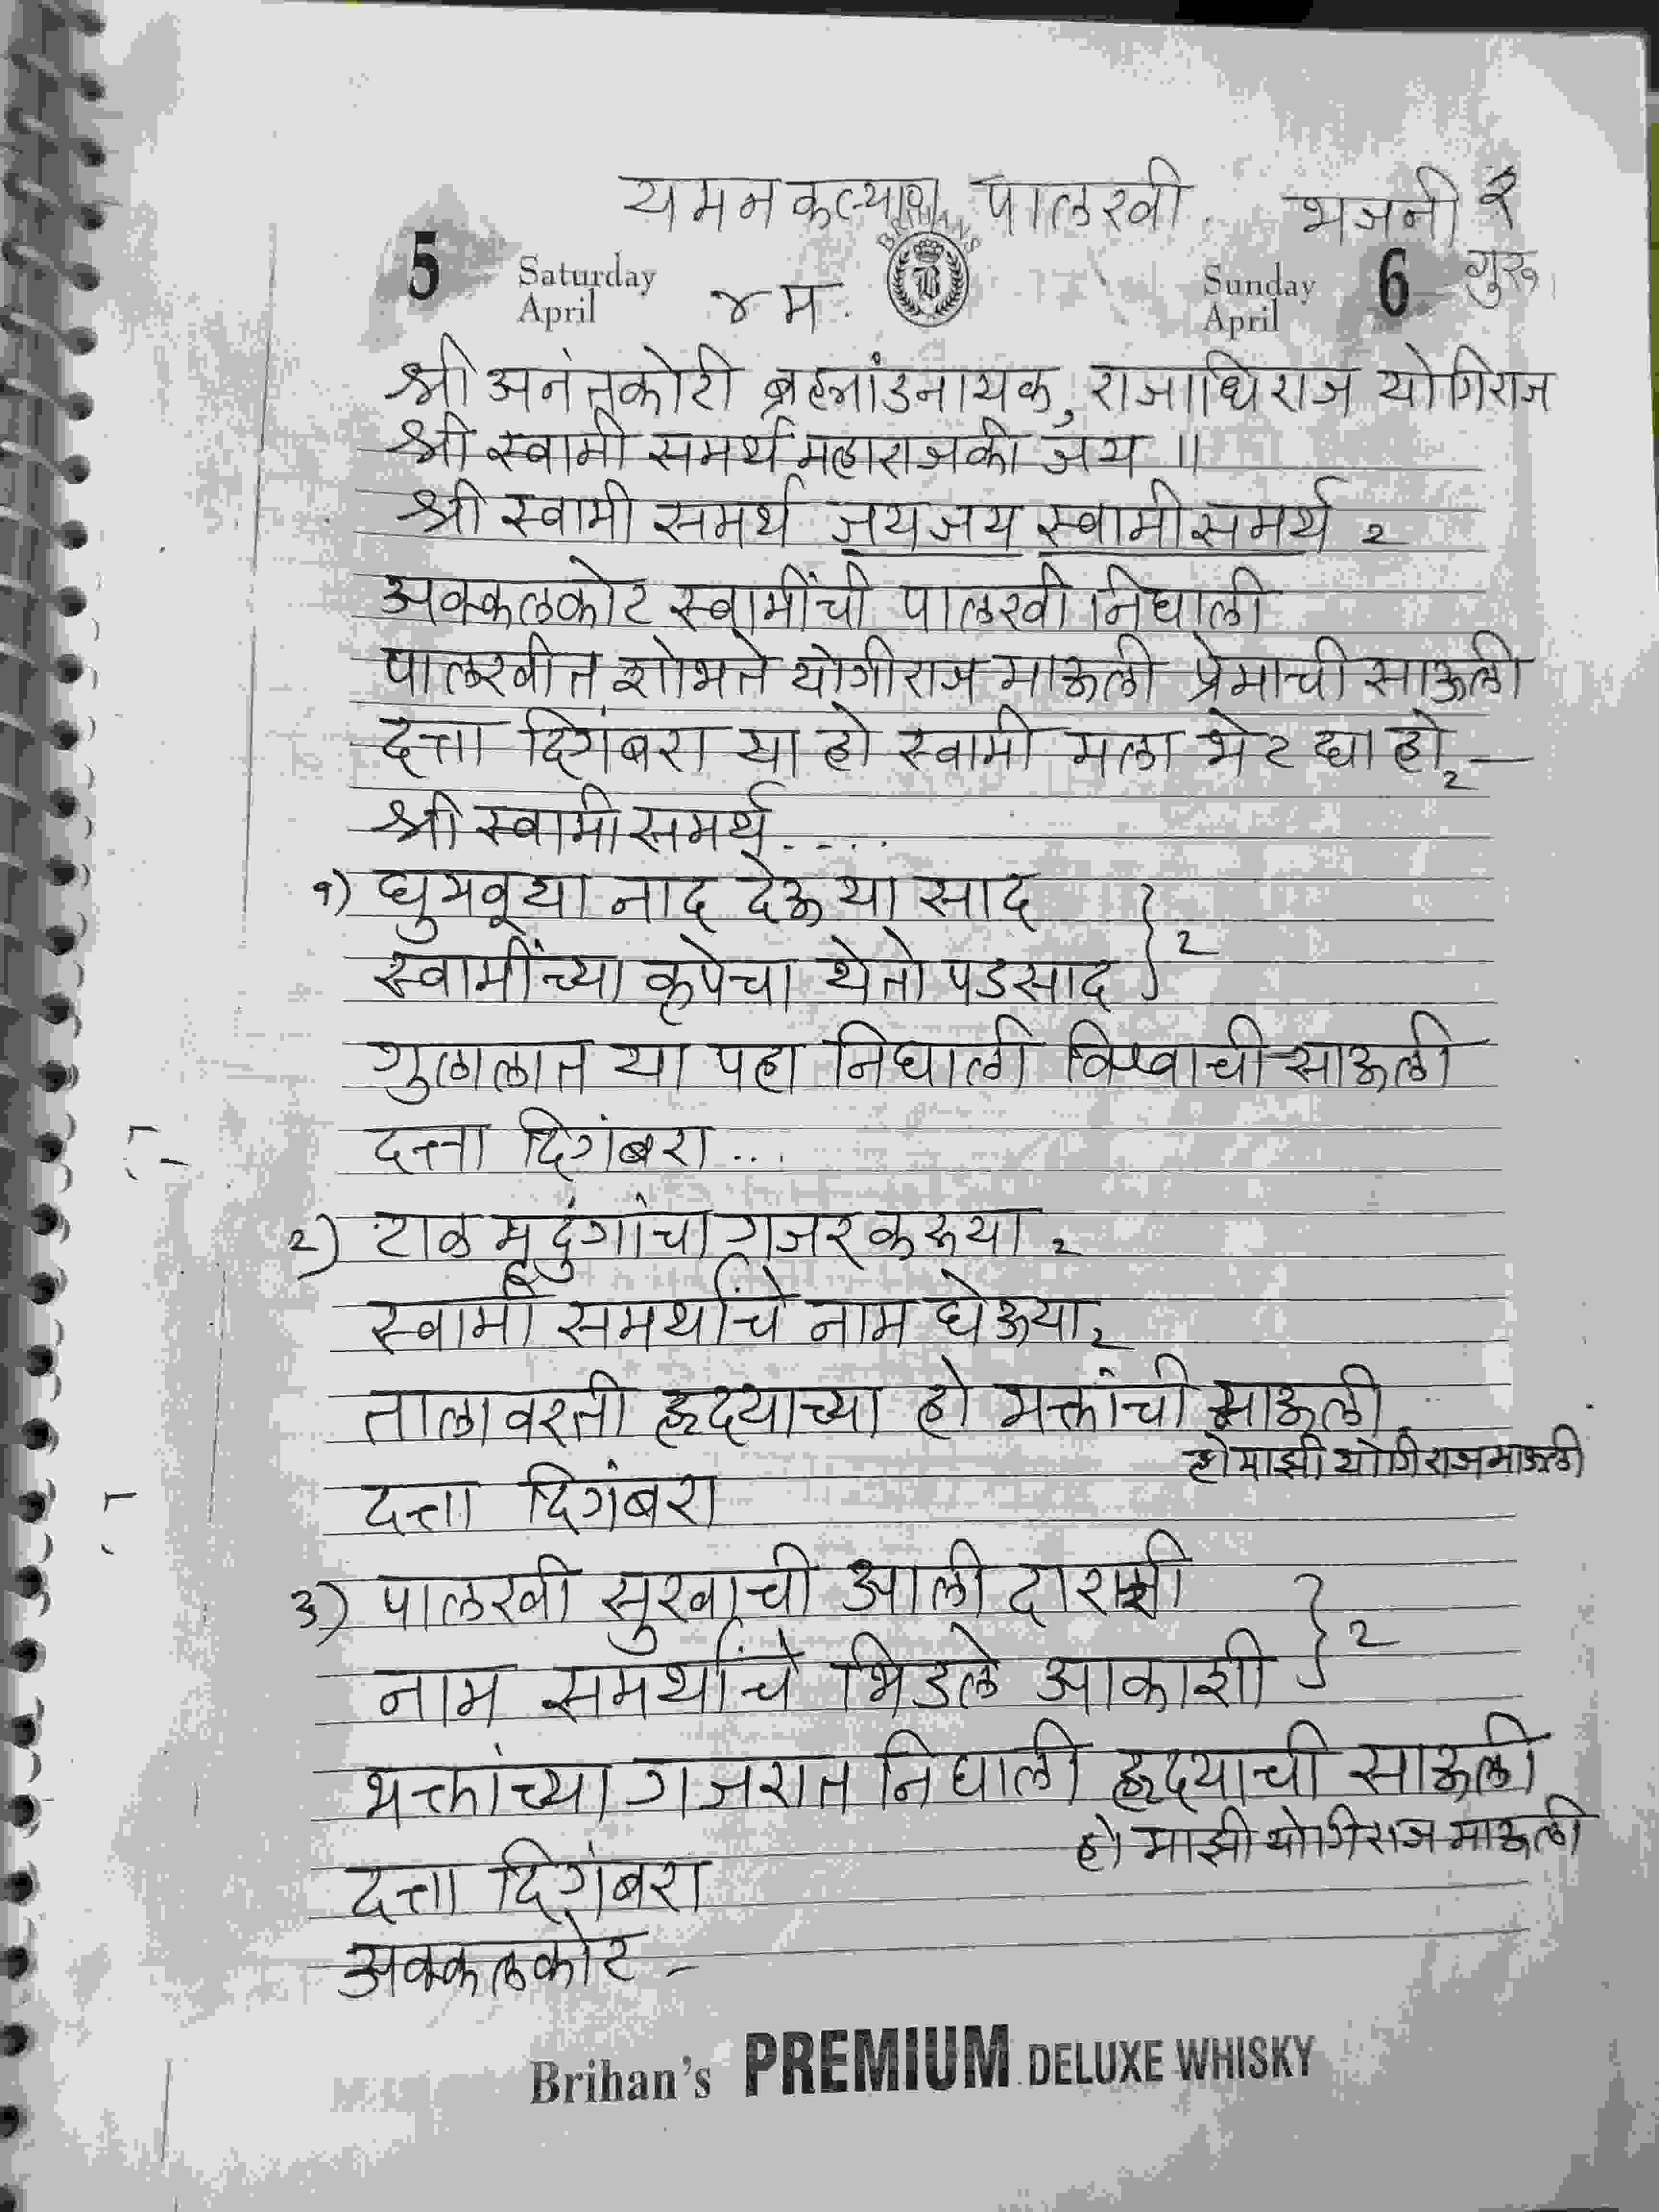 यमनकल्याण पालखी. भजनी २
BRIHANS
5 Saturday April ४म. B Sunday April 6 गुरु
श्री अनंतकोटी ब्रह्मांडनायक, राजाधिराज योगिराज
श्री स्वामी समर्थ महाराजकी जय ॥
श्री स्वामी समर्थ जयजय स्वामीसमर्थ २
अक्कलकोट स्वामींची पालखी निघाली
पालखीत शोभते योगीराज माऊली प्रेमाची साऊली
दत्ता दिगंबरा या हो स्वामी मला भेट द्या हो २ —
श्री स्वामीसमर्थ ....
१) घुमवूया नाद देऊया साद
स्वामींच्या कृपेचा येतो पडसाद } २
गुलालात या पहा निघाली विश्वाची साऊली
दत्ता दिगंबरा ...
२) टाळ मृदुंगांचा गजर करूया २
स्वामी समर्थांचे नाम घेऊया २
तालावरती हृदयाच्या हो भक्तांची साऊली
हो माझी योगिराज माऊली
दत्ता दिगंबरा
३) पालखी सुखाची आली दाराशी
नाम समर्थांचे भिडले आकाशी } २
भक्तांच्या गजरात निघाली हृदयाची साऊली
हो माझी योगिराज माऊली
दत्ता दिगंबरा
अक्कलकोट –
Brihan's PREMIUM DELUXE WHISKY